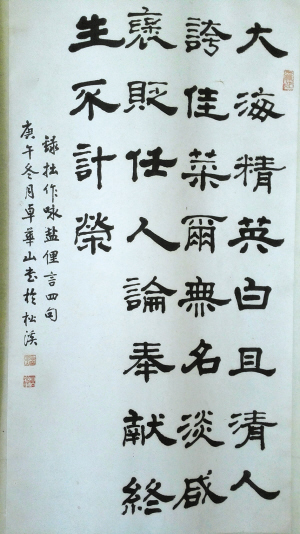 大海精英白且清人
誇佳菜爾無名淡咸
褒貶任人論奉献終
生不計榮
錄拙作咏盐俚言四句
庚午冬月卓華山书於松溪